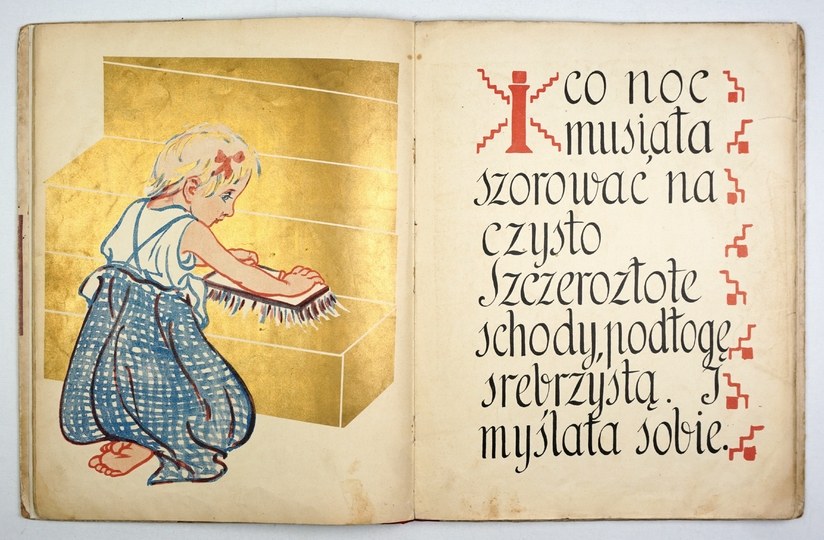 I co noc
musiała
szorować na
czysto
Szczerozłote
schody, podłogę
srebrzystą. I
myślała sobie.